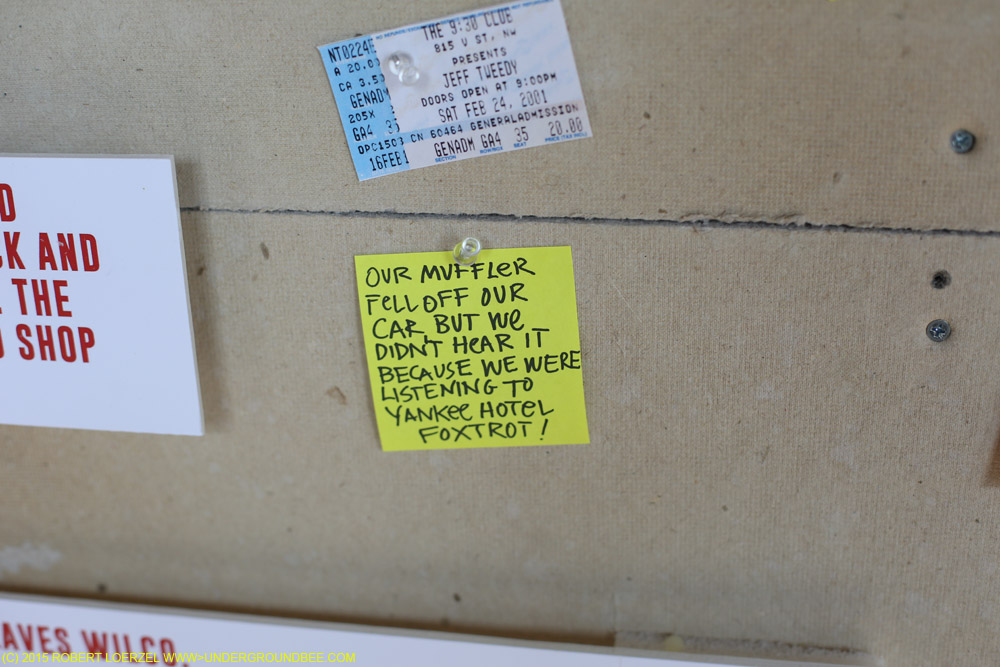 THE 9:30 CLUB
815 U ST, NW
PRESENTS
JEFF TWEEDY
DOORS OPEN AT 9:00PM
SAT FEB 24, 2001
NT0224E
A 20.00
CA 3.50
GENADM
205X
GA4 35
OPC1503 CN 60464 GENERALADMISSION
16FEB1 GENADM GA4 35 20.00
SECTION ROW/BOX SEAT
D
CK AND
THE
SHOP
OUR MUFFLER
FELL OFF OUR
CAR, BUT WE
DIDN'T HEAR IT
BECAUSE WE WERE
LISTENING TO
YANKEE HOTEL
FOXTROT!
AVES WILCO.
(C) 2015 ROBERT LOERZEL WWW>UNDERGROUNDBEE.COM